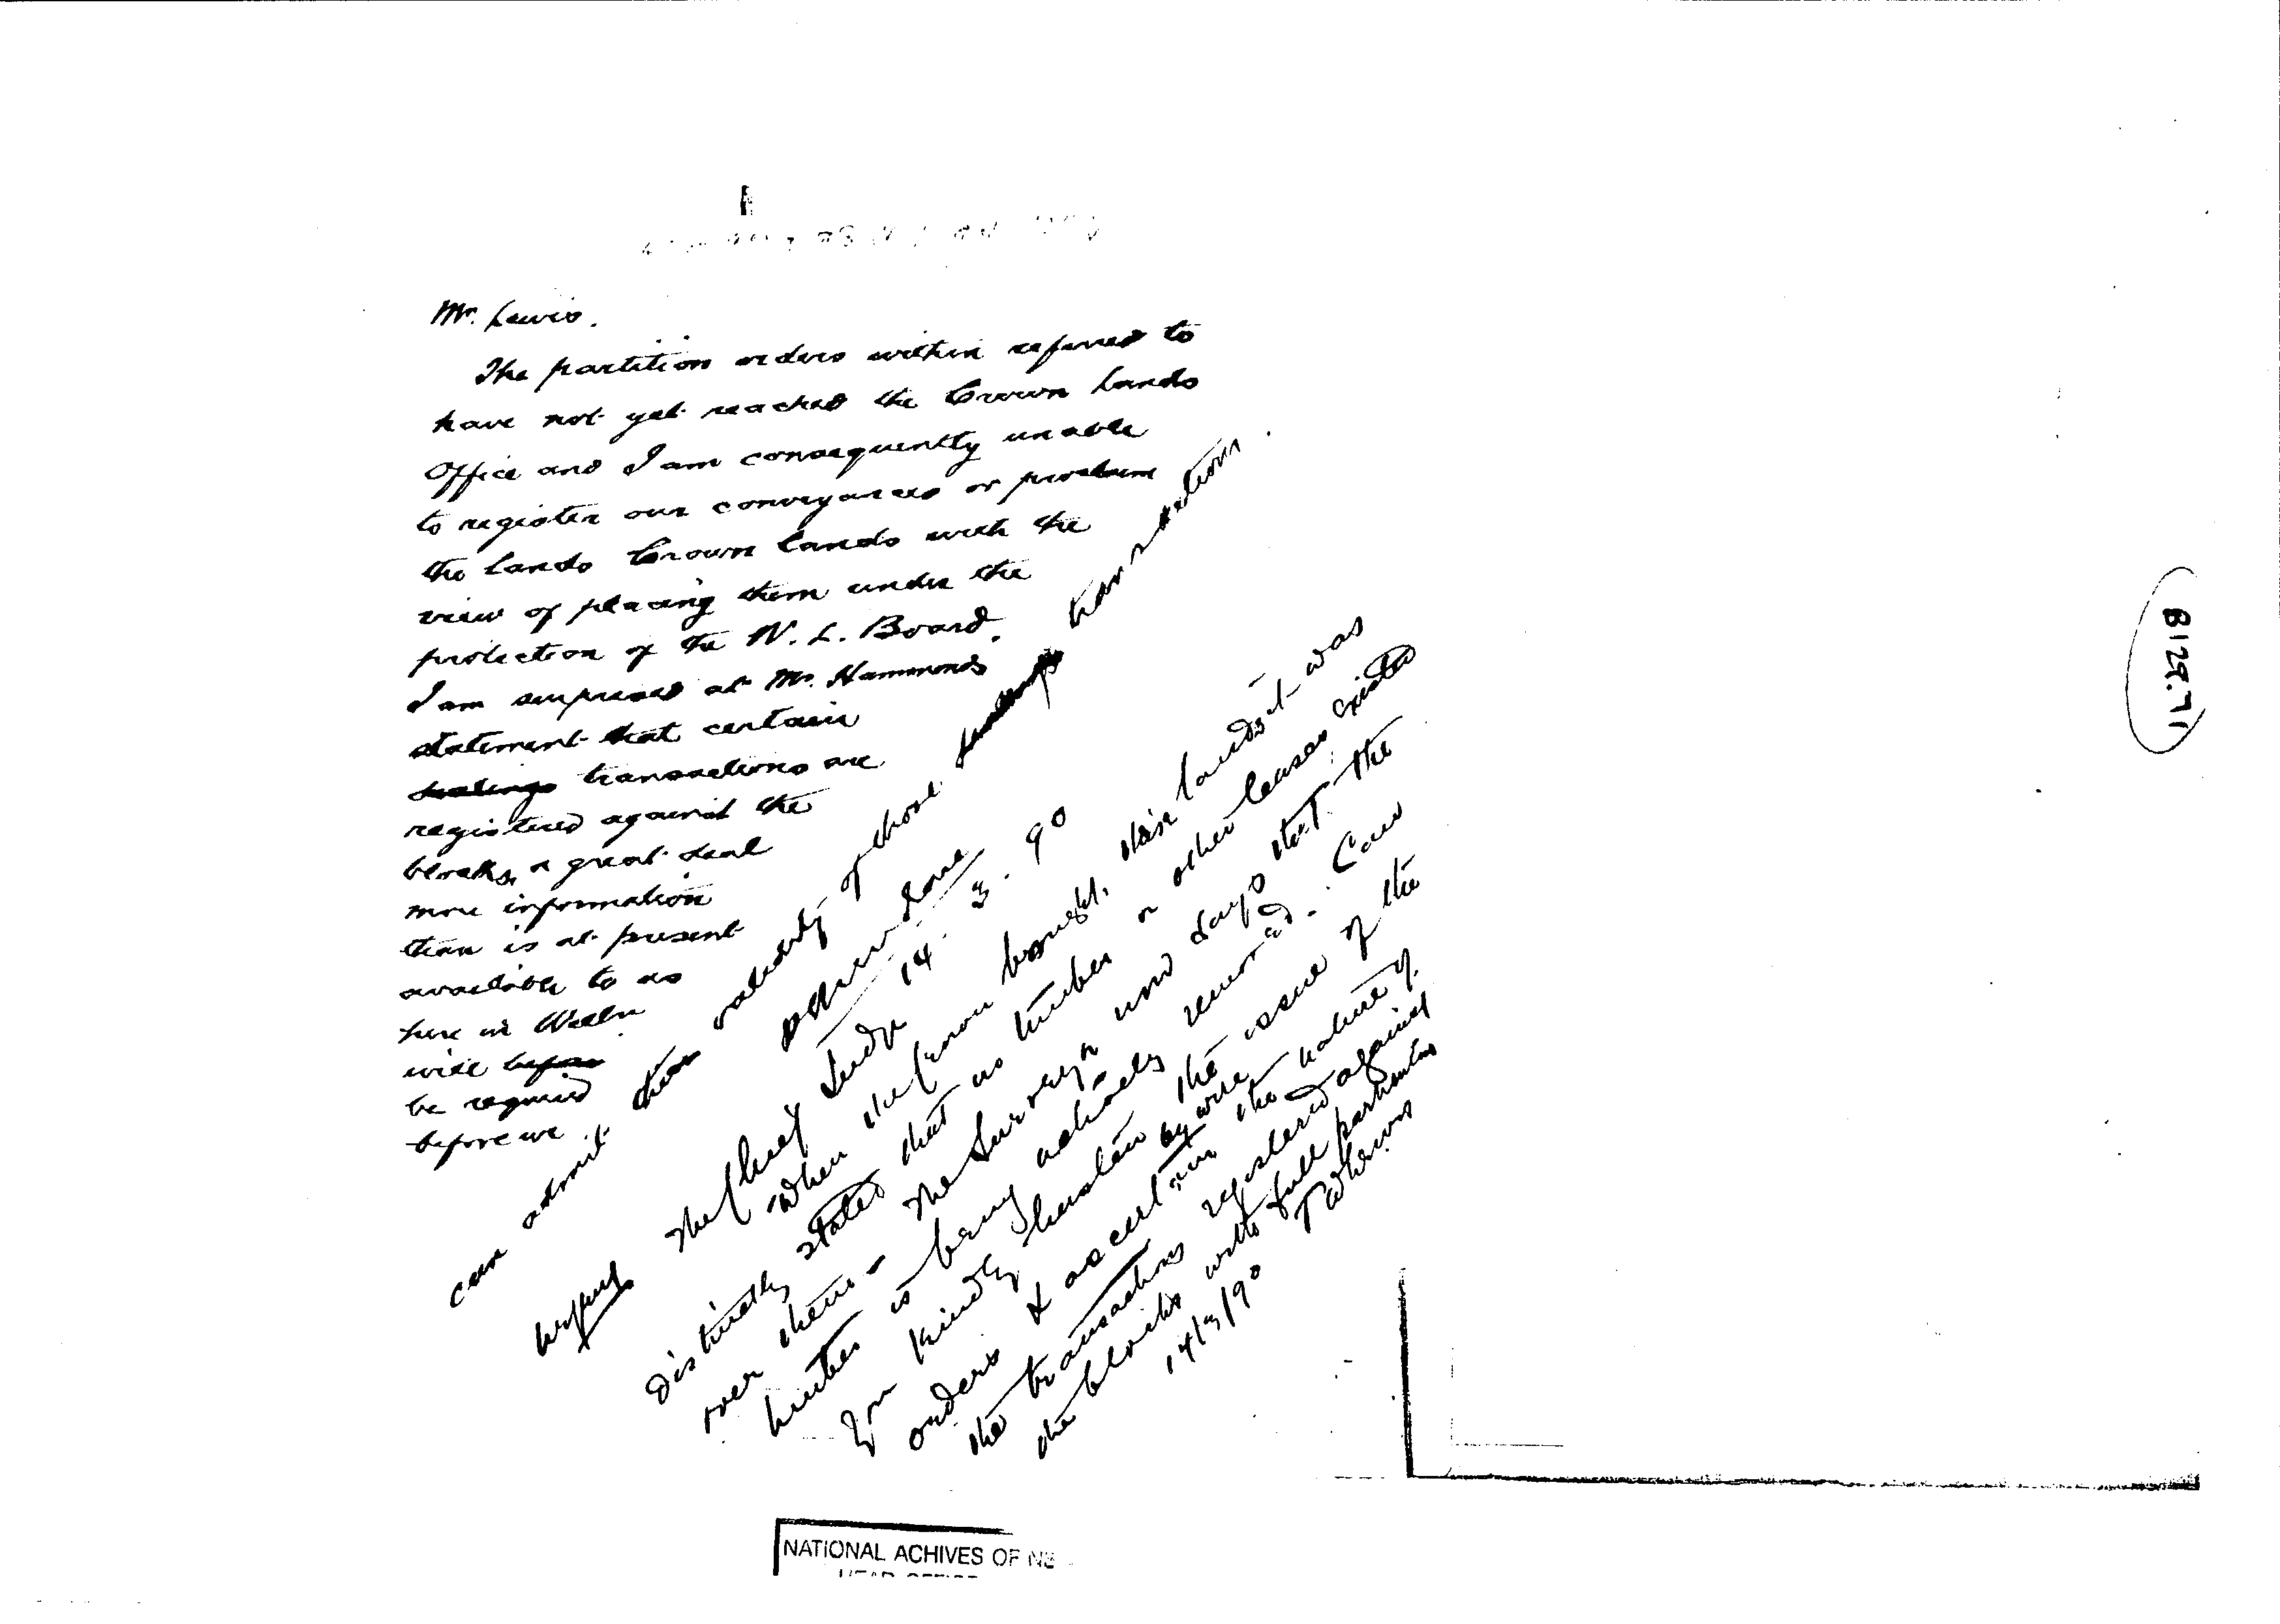 Mr. Lewis.
The partition orders within referred to
have not yet reached the Crown Lands
Office and I am consequently unable
to register our conveyances or proclaim
the lands Crown Lands with the
view of placing them under the
protection of the N. L. Board.
I am surprised at Mr. Hammond's
statement that certain
dealings transactions are
registered against the
blocks, a great deal
more information
than is at present
available to us
here in Welln
will before
be required
before we
can admit the validity of those dealings transactions.
14. 3. 90
Urgent
The Chief Judge
When the Crown bought, these lands it was
distinctly stated that no timber or other leases existed
over them - The Surveyor now says that the
timber is being actively removed. Can
you kindly hasten by wire the issue of the
orders & ascertain the nature of
the transactions registered against
the blocks with full particulars
14/3/90
T W Lewis
B1293.71
NATIONAL ACHIVES OF NZ
HEAD OFFICE